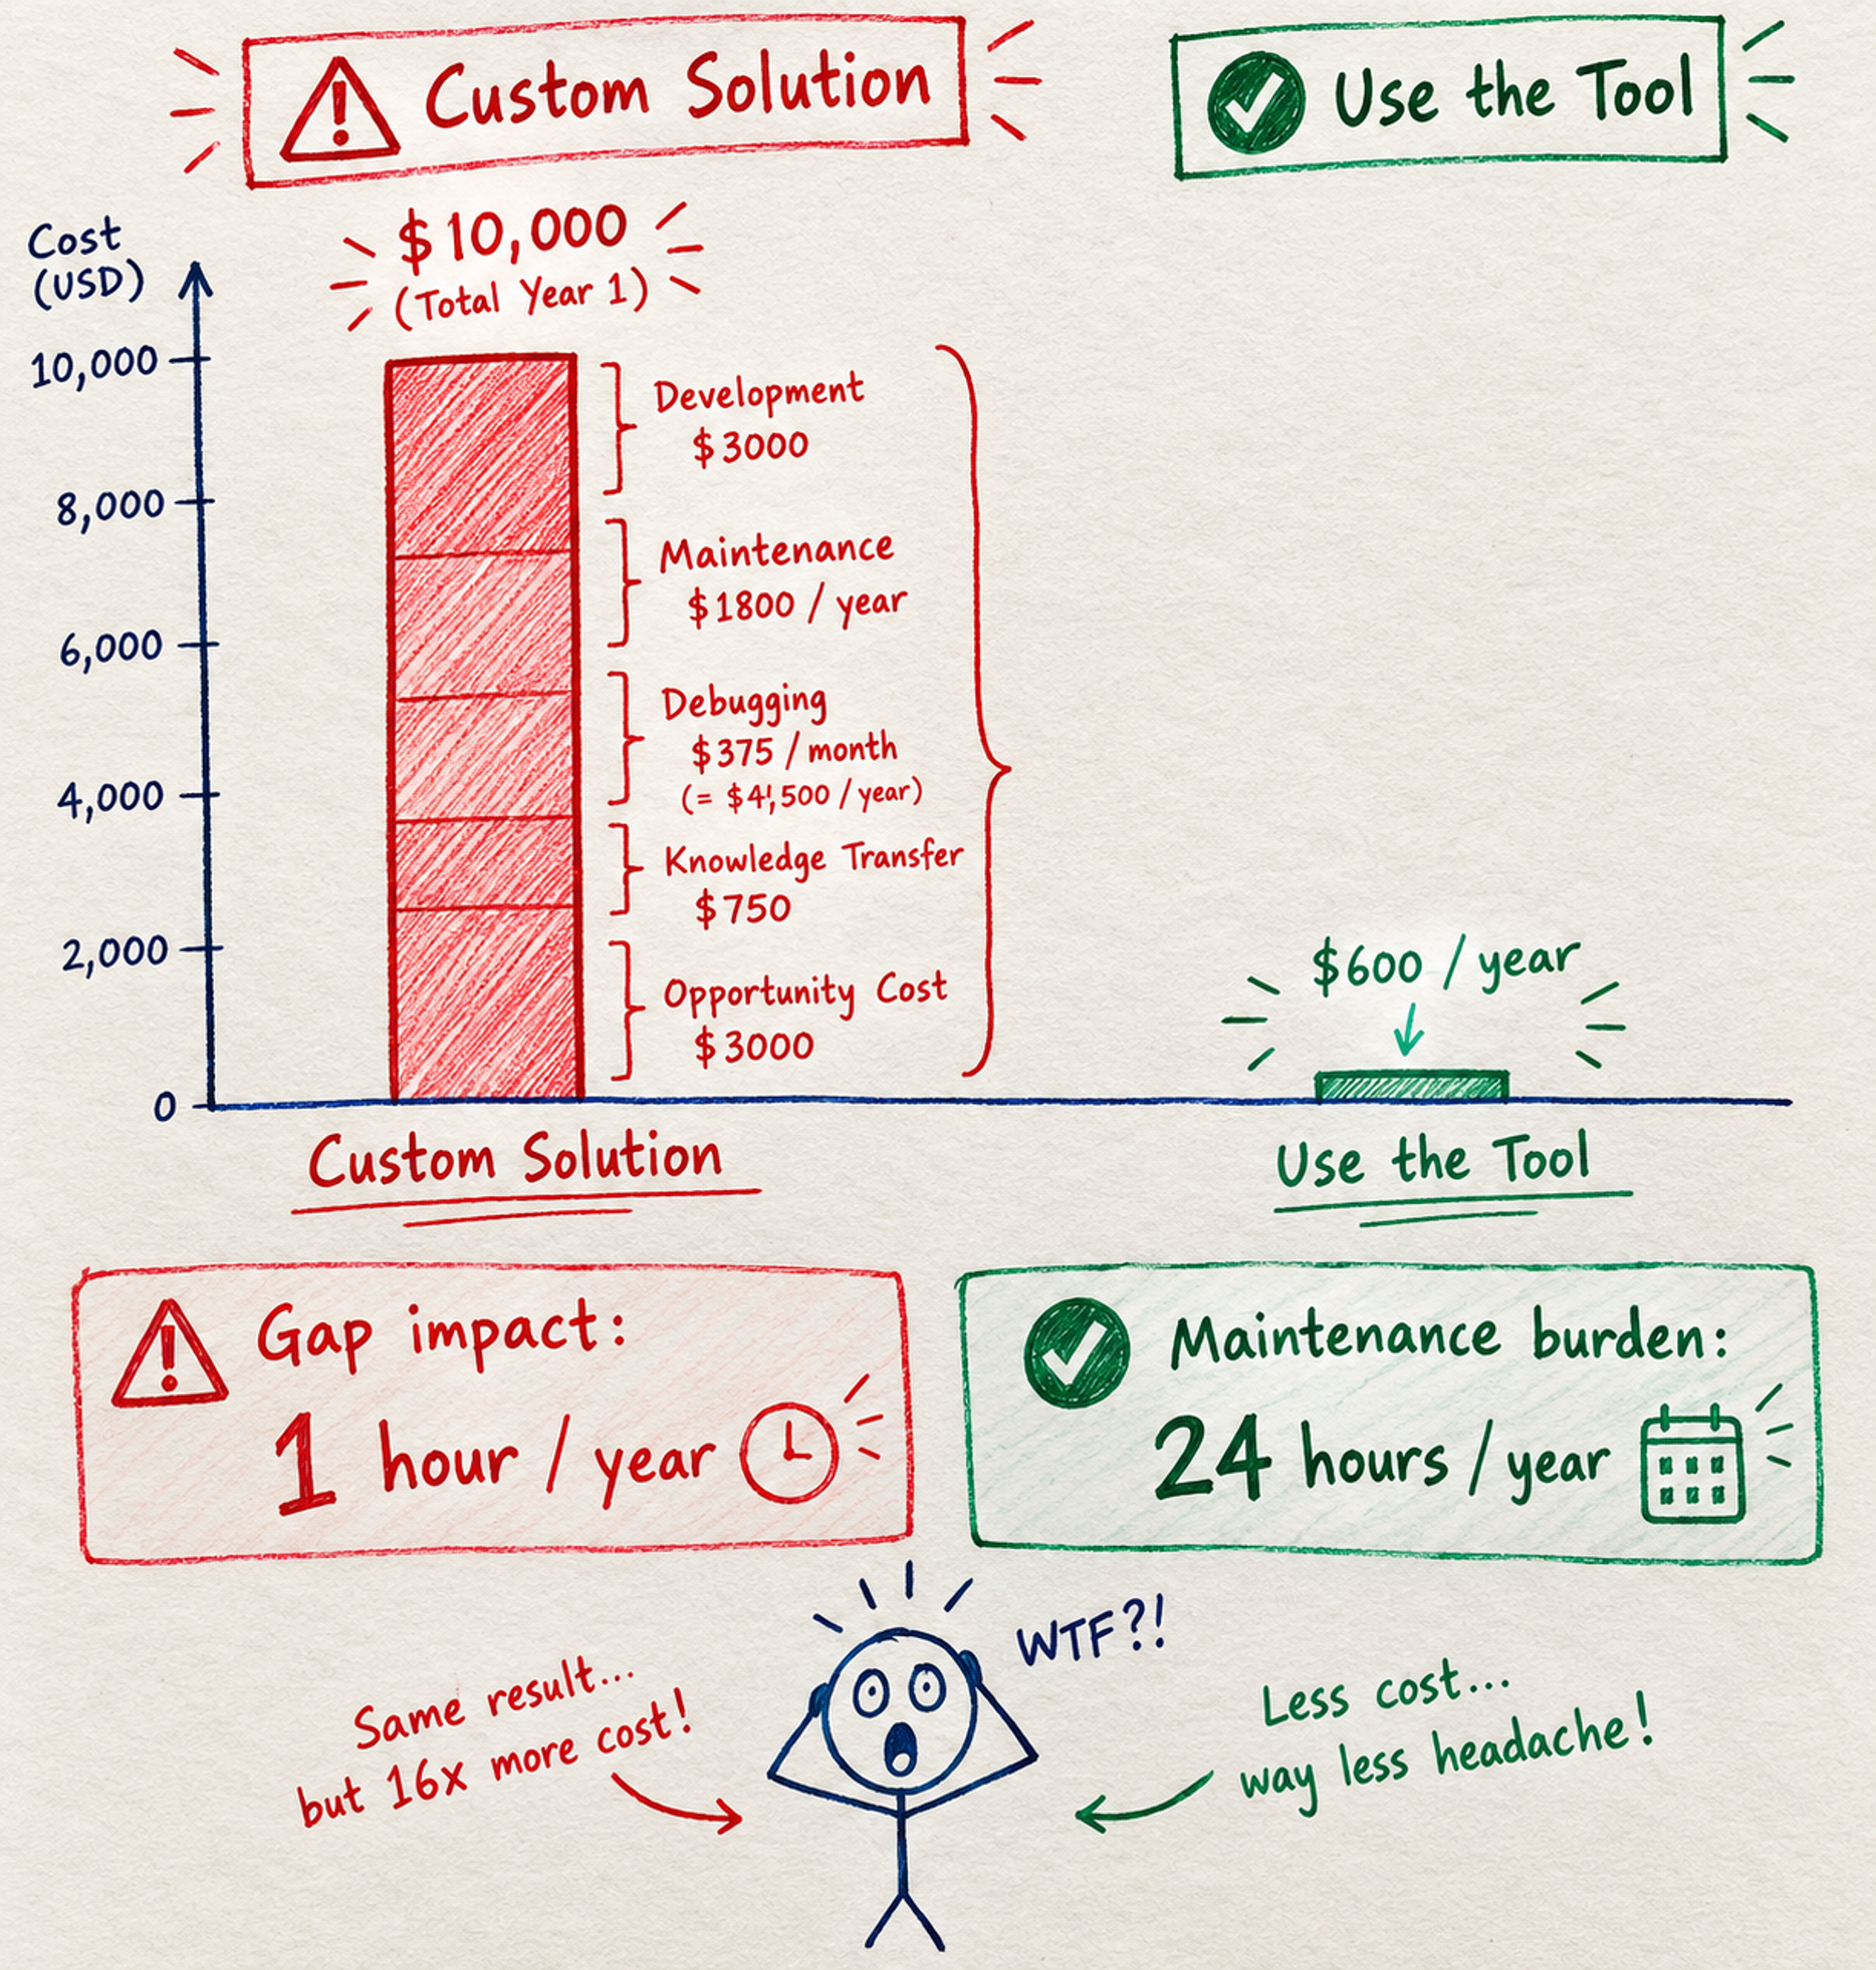 Custom Solution
Use the Tool
Cost
(USD)
$10,000
(Total Year 1)
10,000
8,000
6,000
4,000
2,000
0
Development
$3000
Maintenance
$1800 / year
Debugging
$375 / month
(= $4,500 / year)
Knowledge Transfer
$750
Opportunity Cost
$3000
$600 / year
Custom Solution
Use the Tool
Gap impact:
1 hour / year
Maintenance burden:
24 hours / year
WTF?!
Same result...
but 16x more cost!
Less cost...
way less headache!